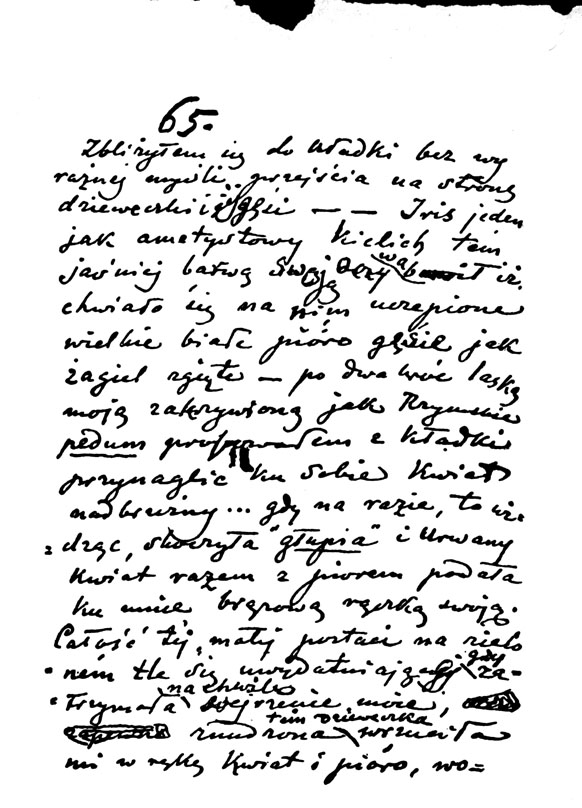 65.
Zbliżyłem się do kładki bez wy
raźnej myśli przejścia na stronę
dzieweczki i jéj gęsi — — Iris jeden
jak ametystowy kielich tém
jaśniej barwą swoją oczy wa iż
chwiało się na nim uczepione
wielkie białe pióro gęsie jak
żagiel zgięte — po dwakroć laską
moją zakrzywioną jak Rzymskie
pedum z kładki
przynaglić ku sobie Kwiat
nadbrzeżny... gdy na razie, to wi-
dząc, skoczyła "głupia" i urwany
Kwiat razem z piórem podała
ku mnie brązową rączką swoją.
Całość téj małéj postaci na zielo
ném tle się uwydatniającéj gdy za-
trzymała na chwilę wejrzenie moje,
zundrona tém dzieweczka wrzuciła
mi w rękę Kwiat i pióro, wo=